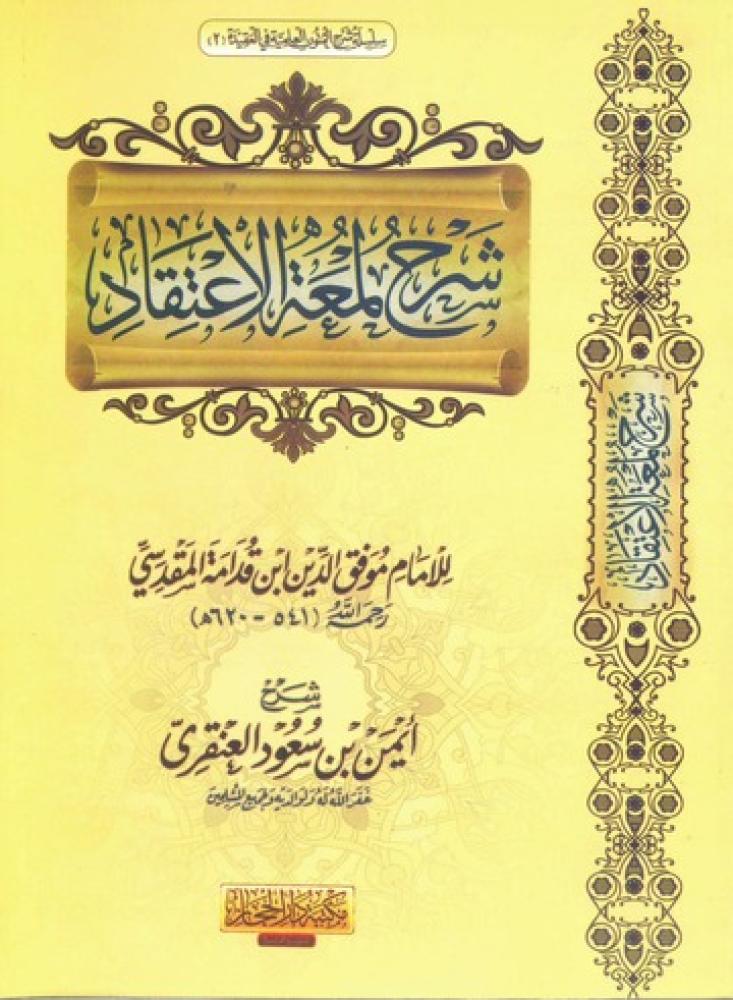 سلسلة شرح المتون العلمية في العقيدة (٢)
شَرْحُ لُمْعَةِ الاِعْتِقَادِ
للإمام موفق الدين ابن قدامة المقدسي
رحمه الله (٥٤١ - ٦٢٠هـ)
شرح
أيمن بن سعود العنقري
غفر الله له ولوالديه ولجميع المسلمين
مكتبة دار الحجاز
شرح لمعة الاعتقاد